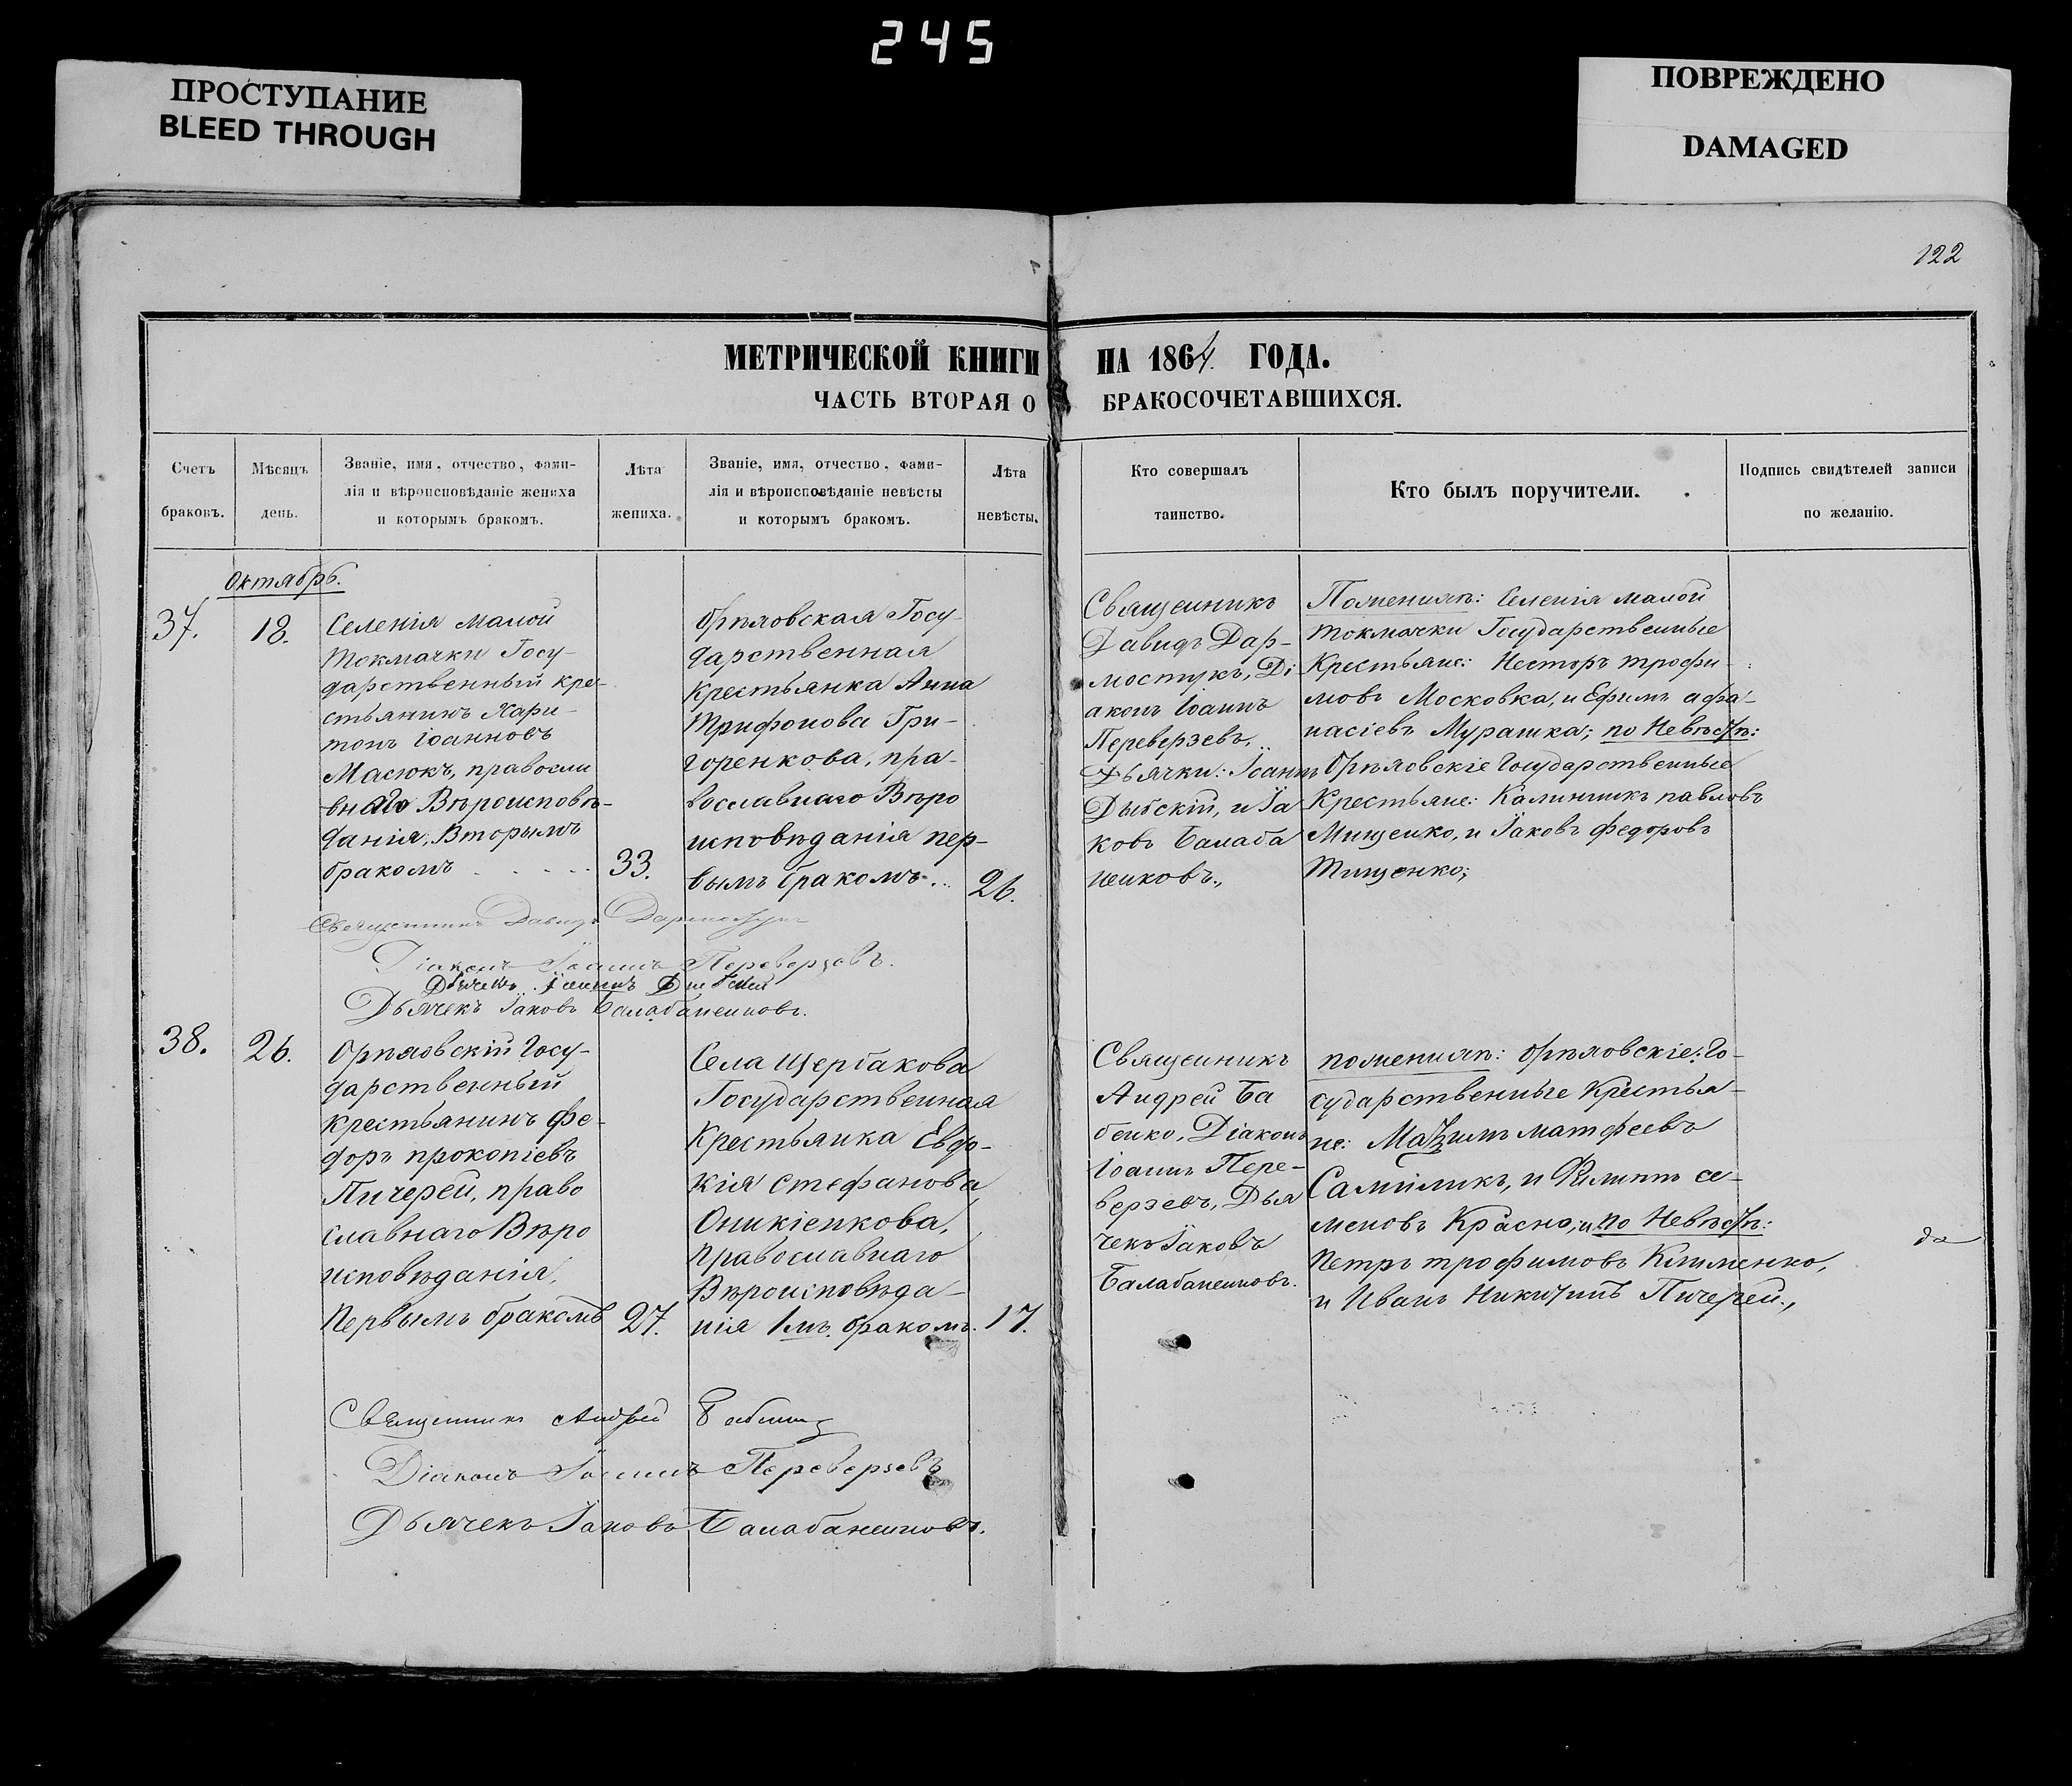 245
ПРОСТУПАНИЕ
BLEED THROUGH
ПОВРЕЖДЕНО
DAMAGED
122
МЕТРИЧЕСКОЙ КНИГИ НА 1864. ГОДА.
ЧАСТЬ ВТОРАЯ О БРАКОСОЧЕТАВШИХСЯ.
Счетъ
браковъ.
Мѣсяцъ
день.
Званіе, имя, отчество, фами-
лія и вѣроисповѣданіе жениха
и которымъ бракомъ.
Лѣта
жениха.
Званіе, имя, отчество, фами-
лія и вѣроисповѣданіе невѣсты
и которымъ бракомъ.
Лѣта
невѣсты.
Кто совершалъ
таинство.
Кто былъ поручители.
Подпись свидѣтелей записи
по желанію.
Октябрь.
37.
18.
Селенія малой
Токмачки Госу-
дарственный кре-
стьянинъ Хари-
тонъ Іоанновъ
Масюкъ, правосла
внаго Вѣроисповѣ-
данія, Вторымъ
бракомъ . . . . .
33.
Орѣховская Госу-
дарственная
крестьянка Анна
Трифонова Гри-
горенкова, пра-
вославнаго Вѣро
исповѣданія пер-
вымъ бракомъ..
26.
Священникъ
Давидъ Дар-
мостукъ, Ді
аконъ Іоаннъ
Переверзевъ,
Дьячки: Іоаннъ
Дыбскій, и Іа
ковъ Балаба
ненковъ.,
По женихѣ: Селенія малой
Токмачки Государственные
Крестьяне: Несторъ трофи-
мовъ Московка, и Ефимъ афа-
насіевъ Мурашка; по Невѣстѣ:
Орѣховскіе Государственные
Крестьяне: Калинникъ павловъ
Мищенко, и Іаковъ федоровъ
Тищенко;
Священникъ Давидъ Дармостукъ
Діаконъ Іоаннъ Переверзевъ.
Дьячекъ Іоаннъ
Дьячекъ Іаковъ Балабаненковъ.
38.
26.
Орѣховскій Госу-
дарственный
крестьянинъ фе-
доръ прокопіевъ
Пичерей, право
славнаго Вѣро
исповѣданія,
Первымъ бракомъ
27.
Села Щербакова
Государственная
Крестьянка Евдо-
кія Стефанова
Оникіенкова,
православнаго
Вѣроисповѣда-
нія 1мъ. бракомъ.
17.
Священникъ
Андрей Ба
бенко, Діаконъ
Іоаннъ Пере-
верзевъ, Дья
чекъ Іаковъ
Балабаненковъ.
по женихѣ: Орѣховскіе: Го-
сударственные Крестья-
не: Маѯимъ матфеевъ
и Филиппъ се-
меновъ Красно, и по Невѣстѣ:
Петръ трофимовъ Клименко,
и Иванъ Никитинъ Пичерей.,
да
Священникъ Андрей Бабенко
Діаконъ Іоаннъ Переверзевъ
Дьячекъ Іаковъ Балабаненковъ.